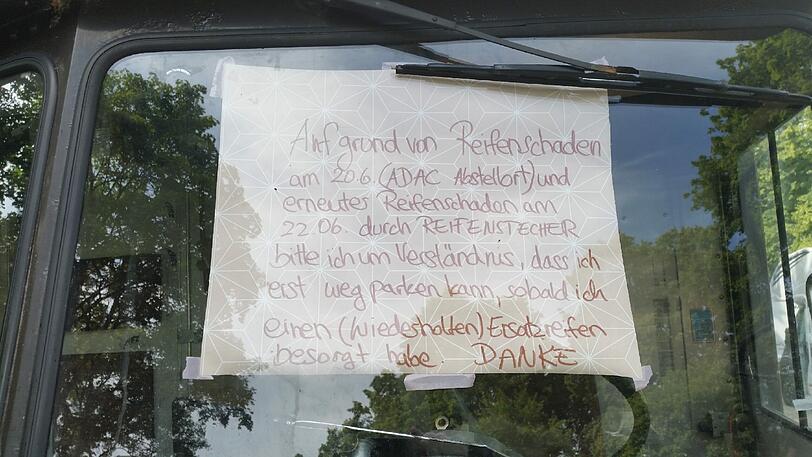 Aufgrund von Reifenschaden
am 20.6. (ADAC Abstellort) und
erneutes Reifenschaden am
22.06. durch REIFENSTECHER
bitte ich um Verständnus, dass ich
erst weg parken kann, sobald ich
einen (wiederholten) Ersatzreifen
besorgt habe. DANKE